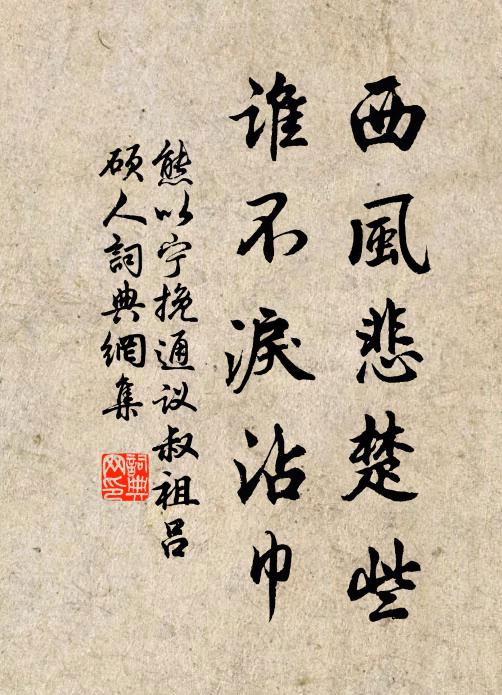 西風悲楚些
誰不淚沾巾
熊以宁挽通议叔祖吕
硕人詞典網集
詞典網印